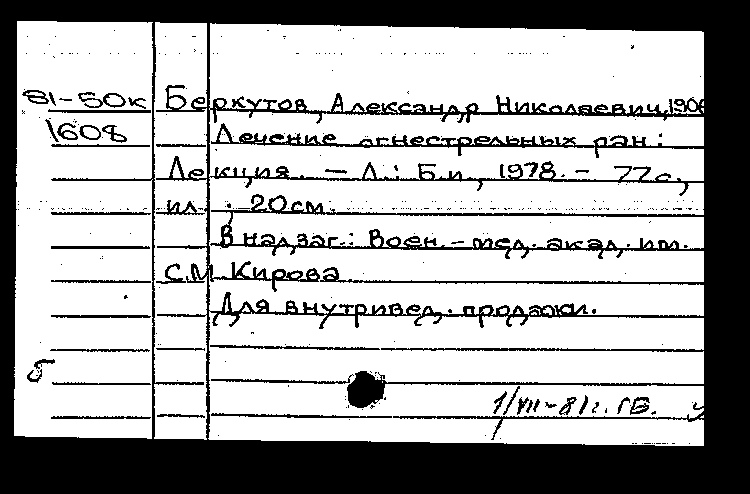 81-50к Беркутов, Александр Николаевич, 1906
1608 Лечение огнестрельных ран:
Лекция. — Л.: Б.и., 1978. – 77с.,
ил.; 20см.
В надзаг.: Воен.-мед. акад. им.
С.М. Кирова
Для внутривед. продажи.
б
1/VII-81г. ГБ.